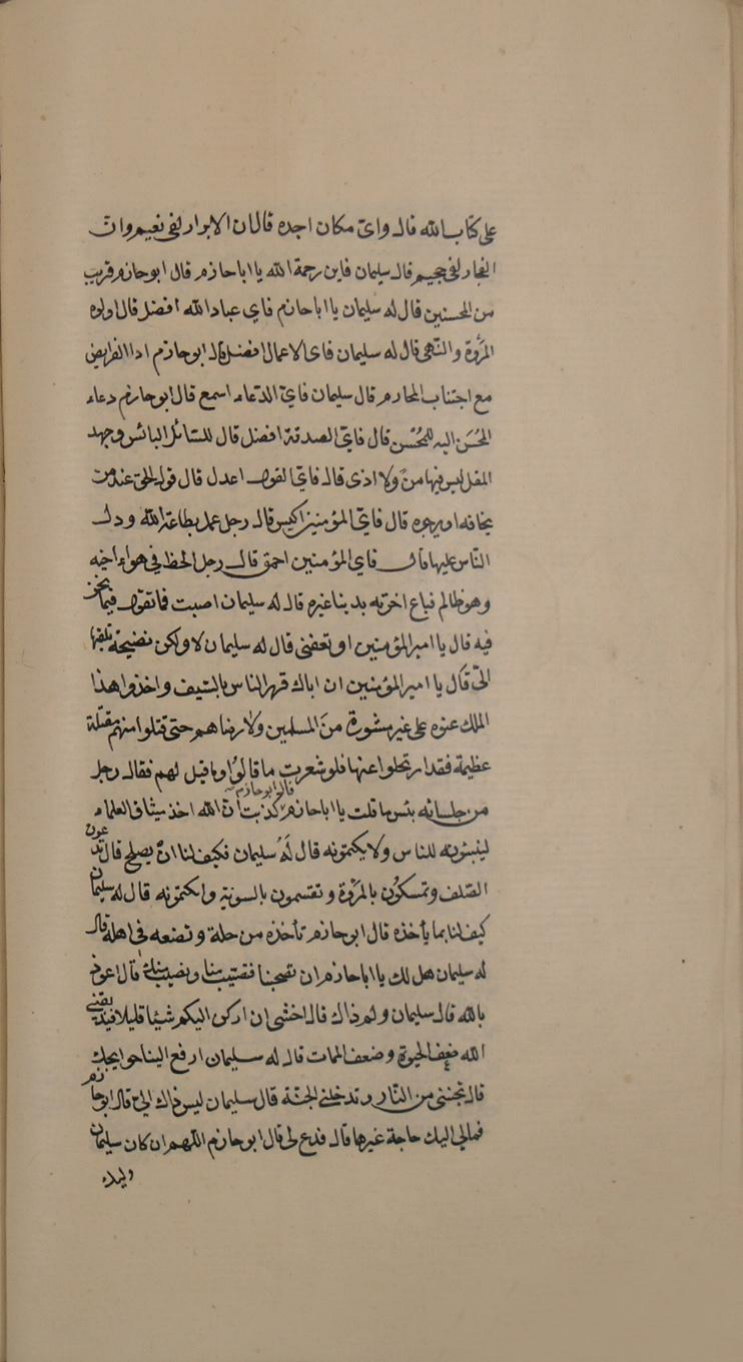 على كتاب الله قال واى مكان اجده قال ان الابرار لفى نعيم وان
الفجار لفى جحيم قال سليمان فاين رحمة الله يا ابا حازم قال ابو حازم قريب
من المحسنين قال له سليمان يا ابا حازم فاي عباد الله افضل قال اولوه
المرؤة والنهى قال له سليمان فاى الاعمال افضل قال ابو حازم اداالفرايض
مع اجتناب المحارم قال سليمان فايّ الدعاء اسمع قال ابو حازم دعاء
المحسَن اليه للمحُسن قال فايّ الصدقة افضل قال للسائل البائس وجهد
المقل ليس فيها منٌ ولا اذى قال فايّ القول اعدل قال قول الحق عند من
يخافه او يرجوه قال فايّ المؤمنين اكيس قال رجل عمل بطاعة الله ودل
الناس عليها قال فاي المؤمنين احمق قال رجل الحظ في هواء اخيه
وهو ظالم فباع اخرته بدينا غيره قال له سليمان اصبت فما تقول فيما نحن
فيه قال يا امير المؤمنين او تعفنى قال له سليمان لا ولكن نصيحة تلقيها
الىّ قال يا امير المؤمنين ان اباك قهر الناس بالسّيف واخذوا هذا
الملك عنوه على غير مشورة منَ المسلمين ولا رضاهم حتى قتلوا منهم مقتلة
عظيمة فقد ارتحلوا عنها فلو شعرت ما قالوُا وما قيل لهم فقال رجل
من جلسائه بئس ما قلت يا ابا حازم قال ابو حازم كذبت انّ الله اخذ ميثاق العلماء
ليبيّنونه للناس ولا يكتمونه قال لَهُ سليمان فكيف لنا انْ يصلح قال تدعون
الصّلف وتمسكوُن بالمرؤة وتقسمون بالسوية قال له سليمان
كيف لنا بما يأخذه قال ابو حازم تأخذه من حلة وتضعه فى اهله قال
له سليمان هل لك يا ابا حازم ان تصحبنا فتصيب منا ونصيب منك قال اعوذ
بالله قال سليمان ولم ذاك قال اخشى ان اركن اليكم شيئا قليلا فيذيقنى
الله ضعف الحيوة وضعف الممات قال له سليمان ارفع الينا حوايجك
قال تنجينى من النّار وتدخلنى الجنّة قال سليمان ليس ذاك الىّ قال ابو حازم
فمالي اليك حاجة غيرها قال فدع لى قال ابو حازم اللهم ان كان سليمان
وليك